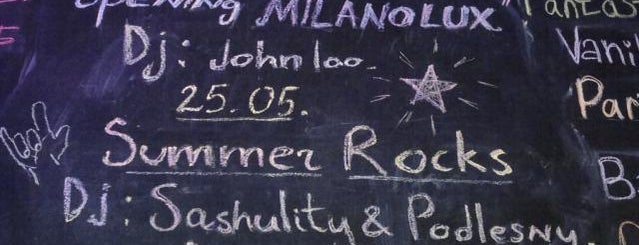 OPENING MILANOLUX
Dj: John loo.
25.05.
Summer Rocks
Dj: Sashulity & Podlesny
Vani
Par
B